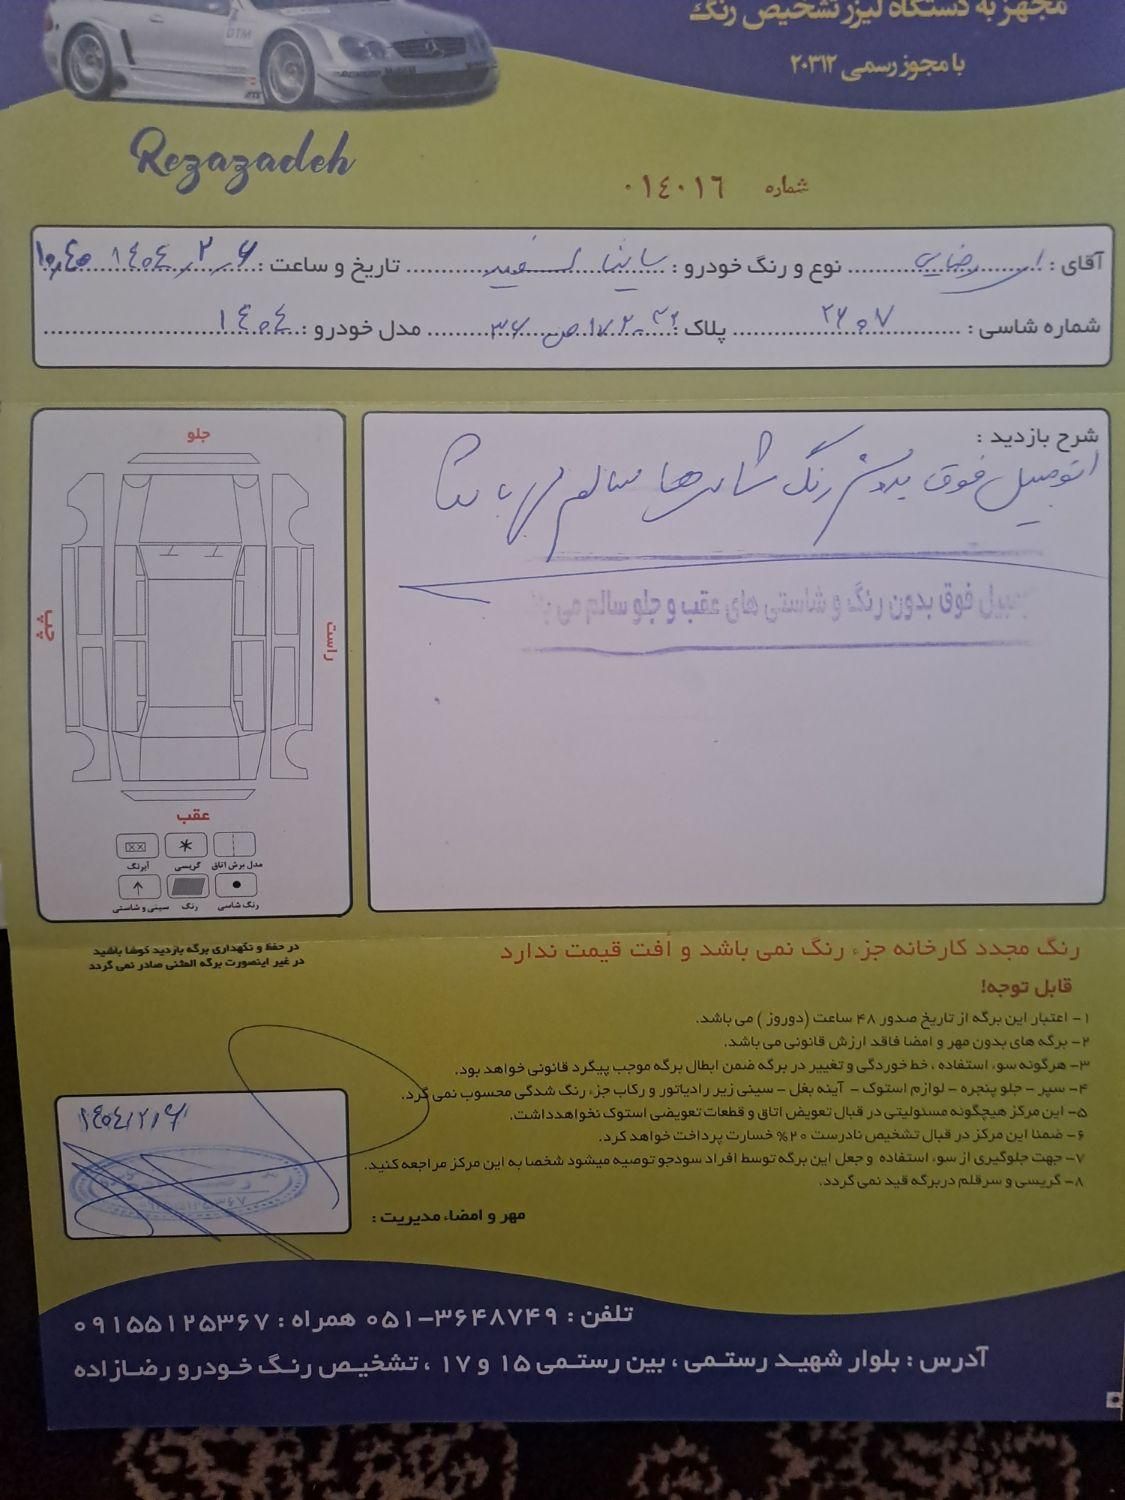 مجهز به دستگاه لیزر تشخیص رنگ
با مجوز رسمی ۲۰۳۱۲
DTM
Rezazadeh
شماره ۰۱٤۰۱٦
آقای : رضایی نوع و رنگ خودرو : ساینا سفید تاریخ و ساعت : ۱۴۰۴/۲/۶ ۱۰,۴۵
شماره شاسی : ۲۶۰۷ پلاک : ص ۳۶ مدل خودرو : ۱۴۰۴
شرح بازدید :
اتومبیل فوق بدون رنگ شاسی ها سالم می باشد
بیل فوق بدون رنگ و شاستی های عقب و جلو سالم می
جلو
چپ
راست
عقب
مدل برش اتاق گریسی آبرنگ
رنگ شاسی رنگ سینی و شاستی
رنگ مجدد کارخانه جزء رنگ نمی باشد و اُفت قیمت ندارد
در حفظ و نگهداری برگه بازدید کوشا باشید
در غیر اینصورت برگه المثنی صادر نمی گردد
قابل توجه!
۱- اعتبار این برگه از تاریخ صدور ۴۸ ساعت (دوروز) می باشد.
۲- برگه های بدون مهر و امضا فاقد ارزش قانونی می باشد.
۳- هرگونه سوء استفاده ، خط خوردگی و تغییر در برگه ضمن ابطال برگه موجب پیگرد قانونی خواهد بود.
۴- سپر - جلو پنجره - لوازم استوک - آینه بغل - سینی زیر رادیاتور و رکاب جزء رنگ شدگی محسوب نمی گردد.
۵- این مرکز هیچگونه مسئولیتی در قبال تعویض اتاق و قطعات تعویضی استوک نخواهدداشت.
۶- ضمنا این مرکز در قبال تشخیص نادرست ۲۰% خسارت پرداخت خواهد کرد.
۷- جهت جلوگیری از سوء استفاده و جعل این برگه توسط افراد سودجو توصیه میشود شخصا به این مرکز مراجعه کنید.
۸- گریسی و سرقلم دربرگه قید نمی گردد.
۱۴۰۴/۲/۶
مهر و امضاء مدیریت :
تلفن : ۳۶۴۸۷۴۹-۰۵۱ همراه : ۰۹۱۵۵۱۲۵۳۶۷
آدرس : بلوار شهید رستمی ، بین رستمی ۱۵ و ۱۷ ، تشخیص رنگ خودرو رضازاده